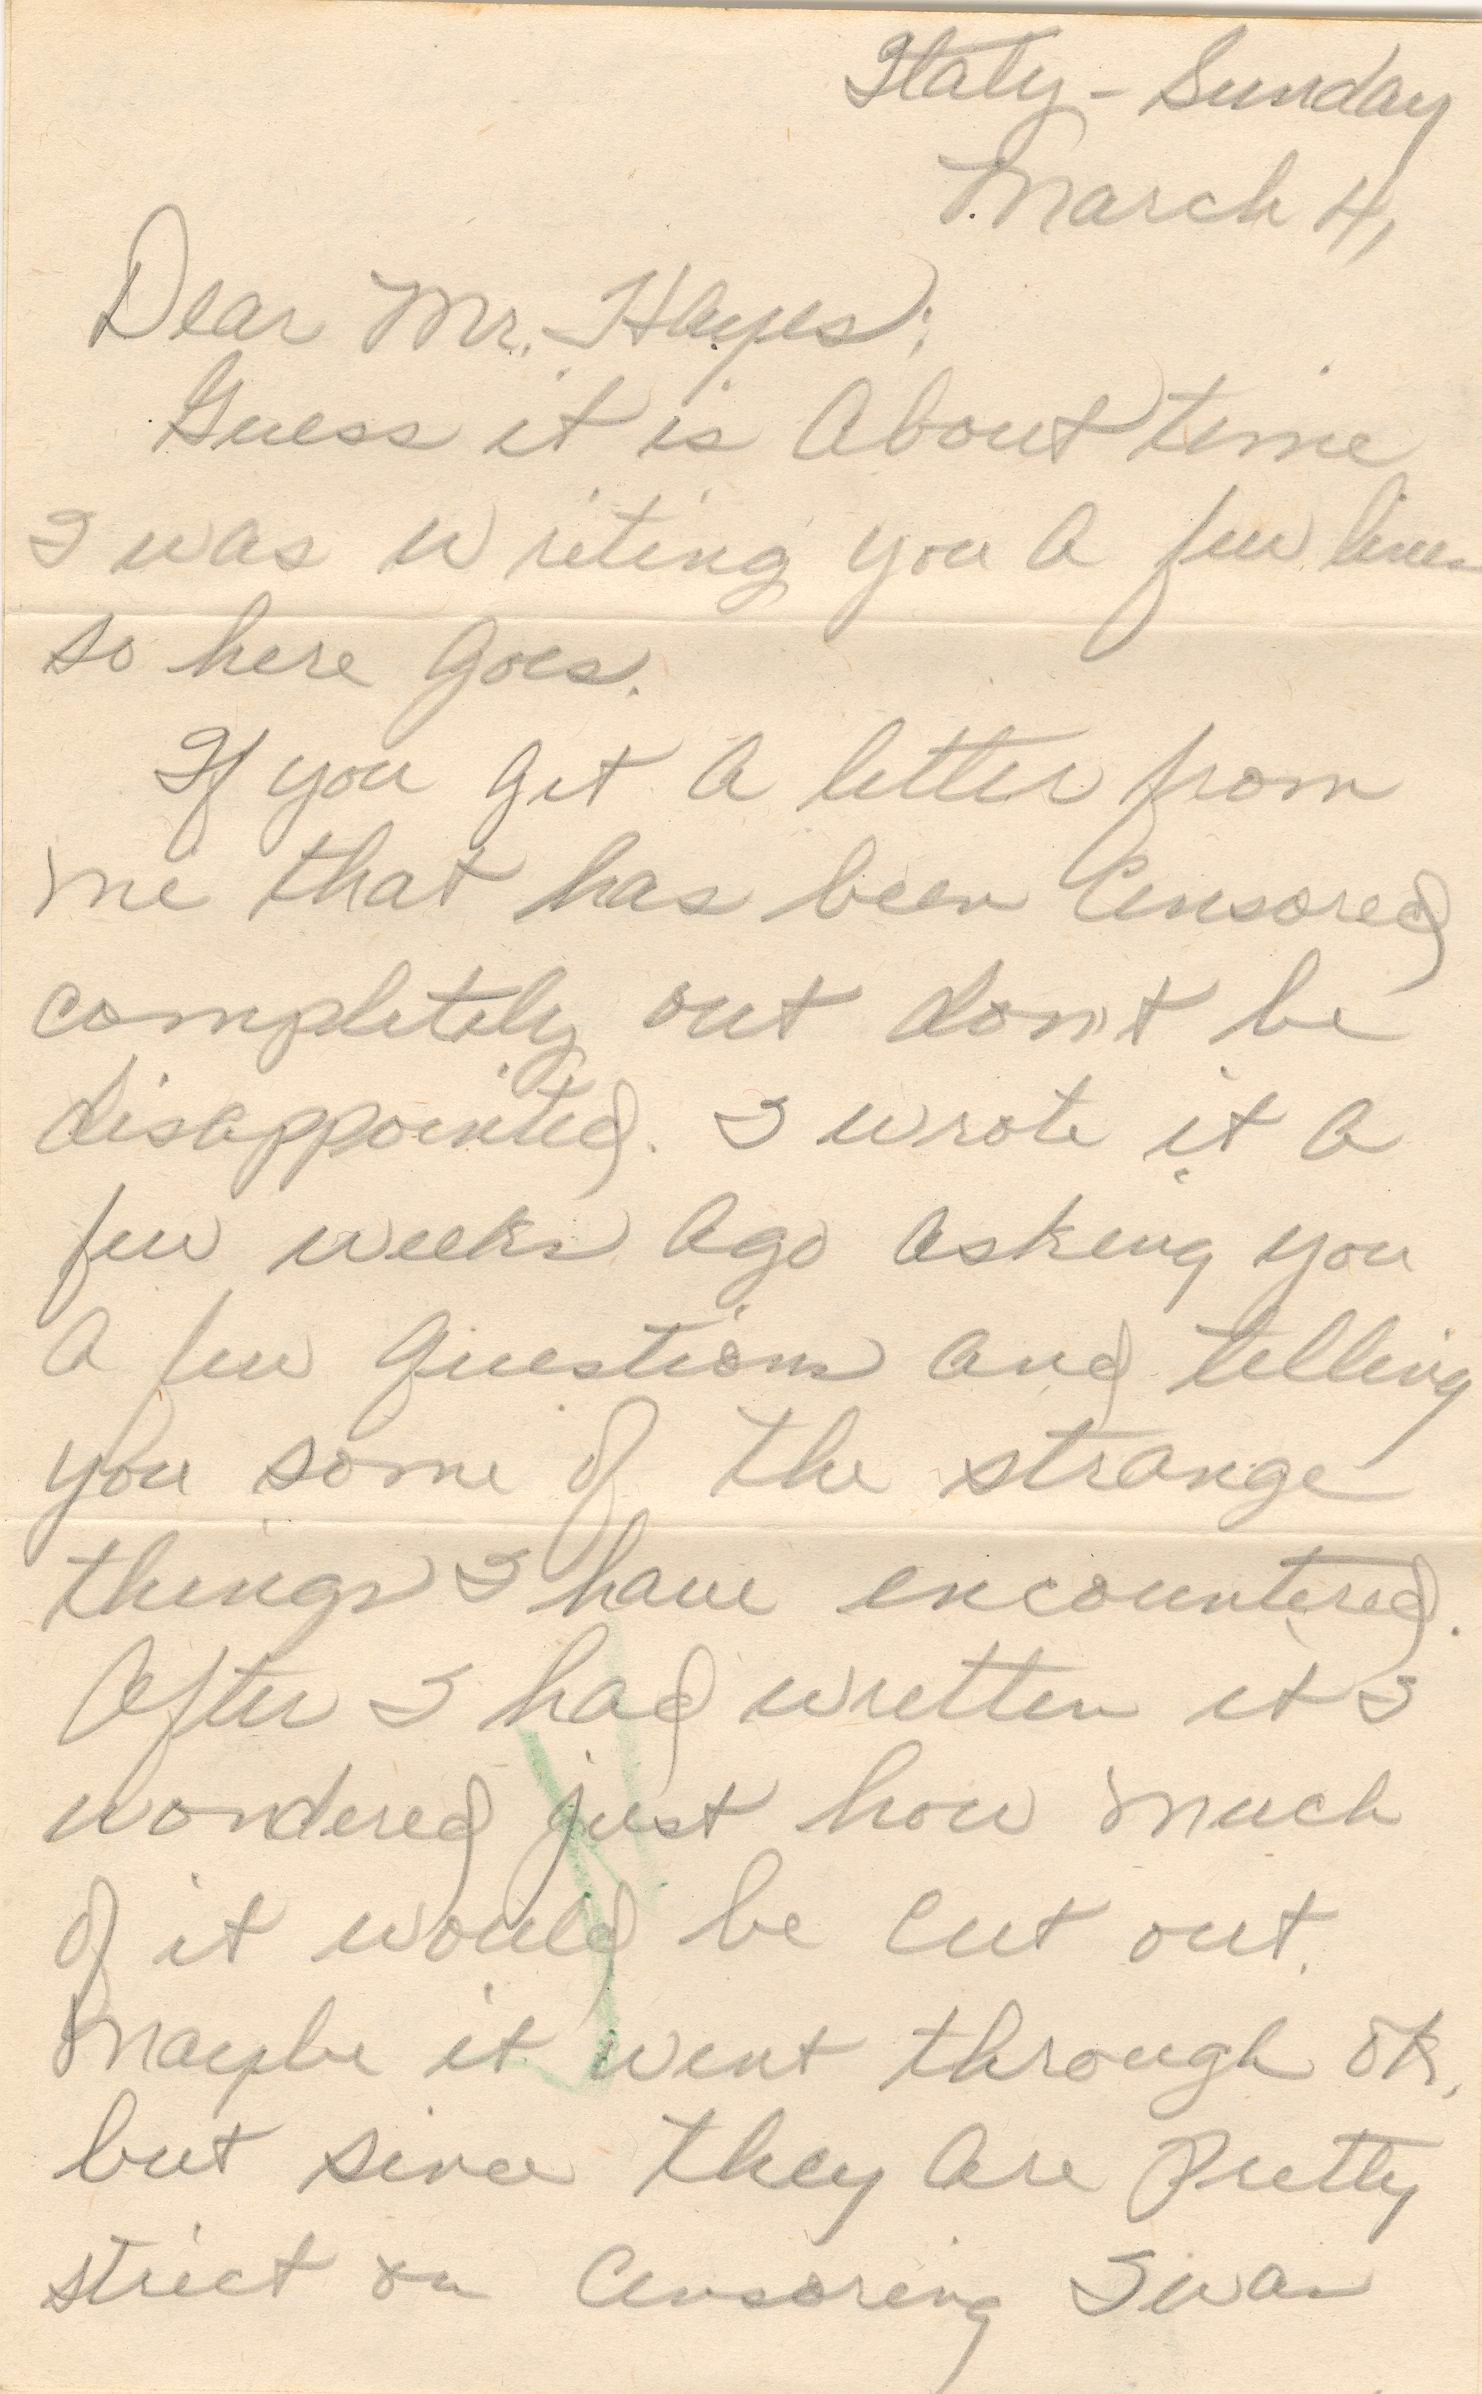 Italy - Sunday
March 4,
Dear Mr. Hayes:
Guess it is About time
I was writing you A few lines
so here goes.
If you get A letter from
me that has been Censored
completely out don't be
disappointed. I wrote it A
few weeks Ago Asking you
A few questions And telling
you some of the strange
things I have encountered.
After I had written it I
wondered just how much
of it would be cut out.
Maybe it went through OK,
but since they Are Pretty
strict on Censoring I was